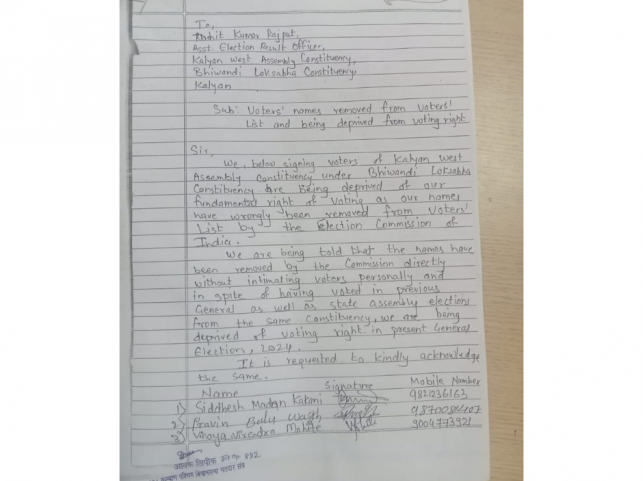 To,
Rohit Kumar Rajput,
Asst. Election Result Officer,
Kalyan West Assembly Constituency,
Bhiwandi Loksabha Constituency
Kalyan
Sub: Voters' names removed from Voters'
List and being deprived from voting right
Sir,
We, below signing voters of Kalyan West
Assembly Constituency under Bhiwandi Loksabha
Constituency are Being deprived of our
fundamental right of Voting as our names
have wrongly been removed from Voters'
List by the Election Commission of
India.
We are being told that the names have
been removed by the Commission directly
without intimating voters personally and
in spite of having voted in previous
General as well as state assembly election
from the same Constituency, we are being
deprived of voting right in present General
Election, 2024.
It is requested to kindly acknowledge
the same.
Name Signature Mobile Number
1) Siddhesh Madan Katani 9821236163
2) Pravin Balu Wagh
3) Vinaya Virendra Mohite 9004773921
आवक लिपीक